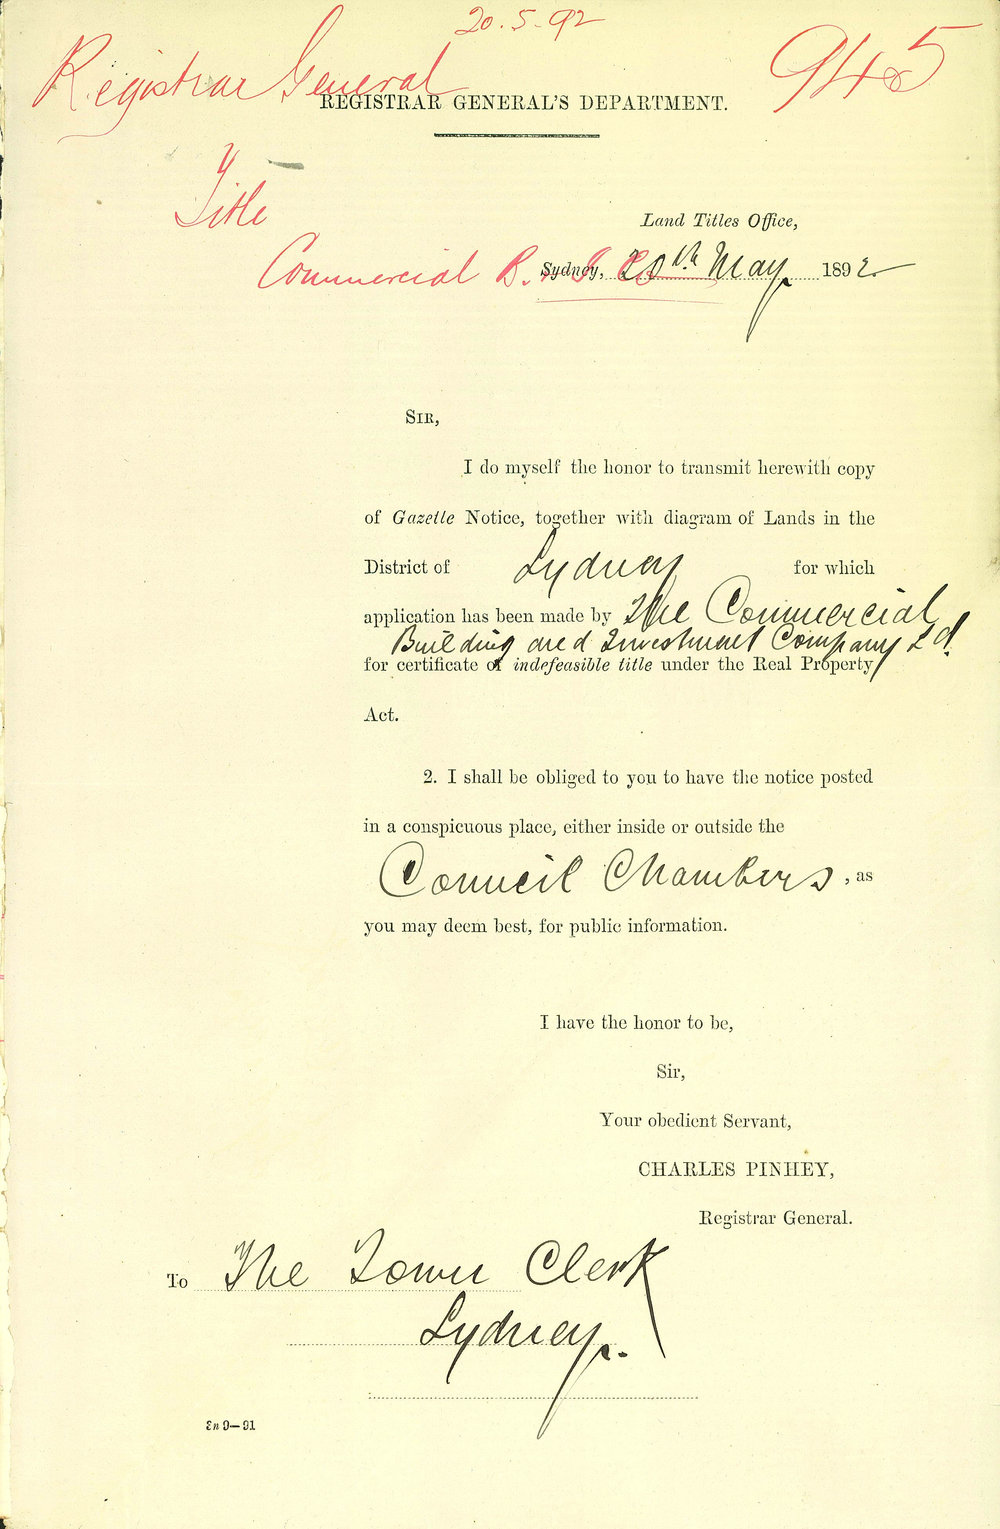 20.5.92
Registrar General
945
REGISTRAR GENERAL'S DEPARTMENT.
Title
Land Titles Office,
Commercial B. & I Co
Sydney, 20th May. 1892
SIR,
I do myself the honor to transmit herewith copy
of Gazette Notice, together with diagram of Lands in the
District of Sydney for which
application has been made by The Commercial
Building and Investment Company Ld.
for certificate of indefeasible title under the Real Property
Act.
2. I shall be obliged to you to have the notice posted
in a conspicuous place, either inside or outside the
Council Chambers, as
you may deem best, for public information.
I have the honor to be,
Sir,
Your obedient Servant,
CHARLES PINHEY,
Registrar General.
To The Town Clerk
Sydney.
3n 9—91